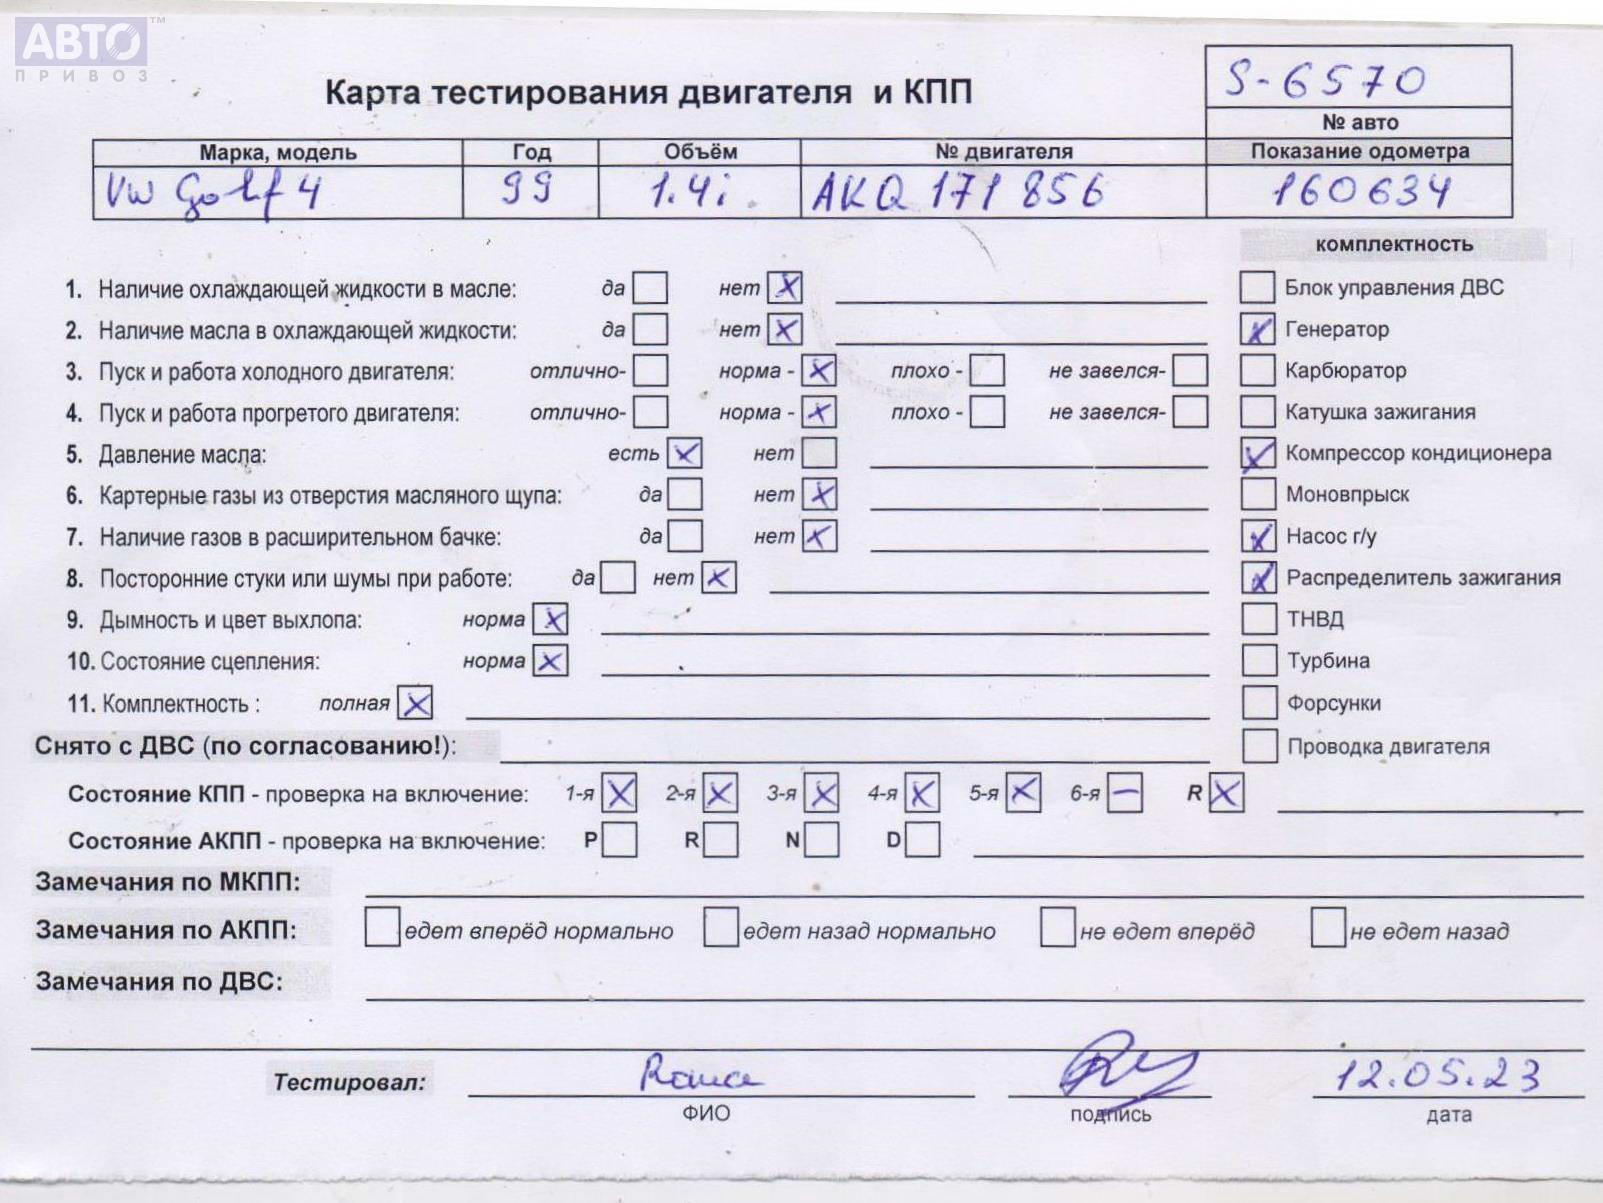 АВТО™
ПРИВОЗ
S-6570
Карта тестирования двигателя и КПП
№ авто
Марка, модель Год Объём № двигателя Показание одометра
VW Golf 4 99 1.4i AKQ 171 856 160634
комплектность
1. Наличие охлаждающей жидкости в масле: да нет X Блок управления ДВС
2. Наличие масла в охлаждающей жидкости: да нет X X Генератор
3. Пуск и работа холодного двигателя: отлично- норма - X плохо - не завелся- Карбюратор
4. Пуск и работа прогретого двигателя: отлично- норма - X плохо - не завелся- Катушка зажигания
5. Давление масла: есть X нет X Компрессор кондиционера
6. Картерные газы из отверстия масляного щупа: да нет X Моновпрыск
7. Наличие газов в расширительном бачке: да нет X X Насос г/у
8. Посторонние стуки или шумы при работе: да нет X X Распределитель зажигания
9. Дымность и цвет выхлопа: норма X ТНВД
10. Состояние сцепления: норма X Турбина
11. Комплектность : полная X Форсунки
Снято с ДВС (по согласованию!): Проводка двигателя
Состояние КПП - проверка на включение: 1-я X 2-я X 3-я X 4-я X 5-я X 6-я – R X
Состояние АКПП - проверка на включение: P R N D
Замечания по МКПП:
Замечания по АКПП: едет вперёд нормально едет назад нормально не едет вперёд не едет назад
Замечания по ДВС:
Тестировал: Рома 12.05.23
ФИО подпись дата